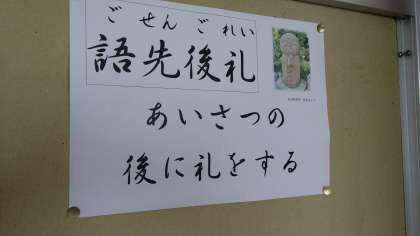 ごせんごれい
語先後礼
あいさつの
後に礼をする